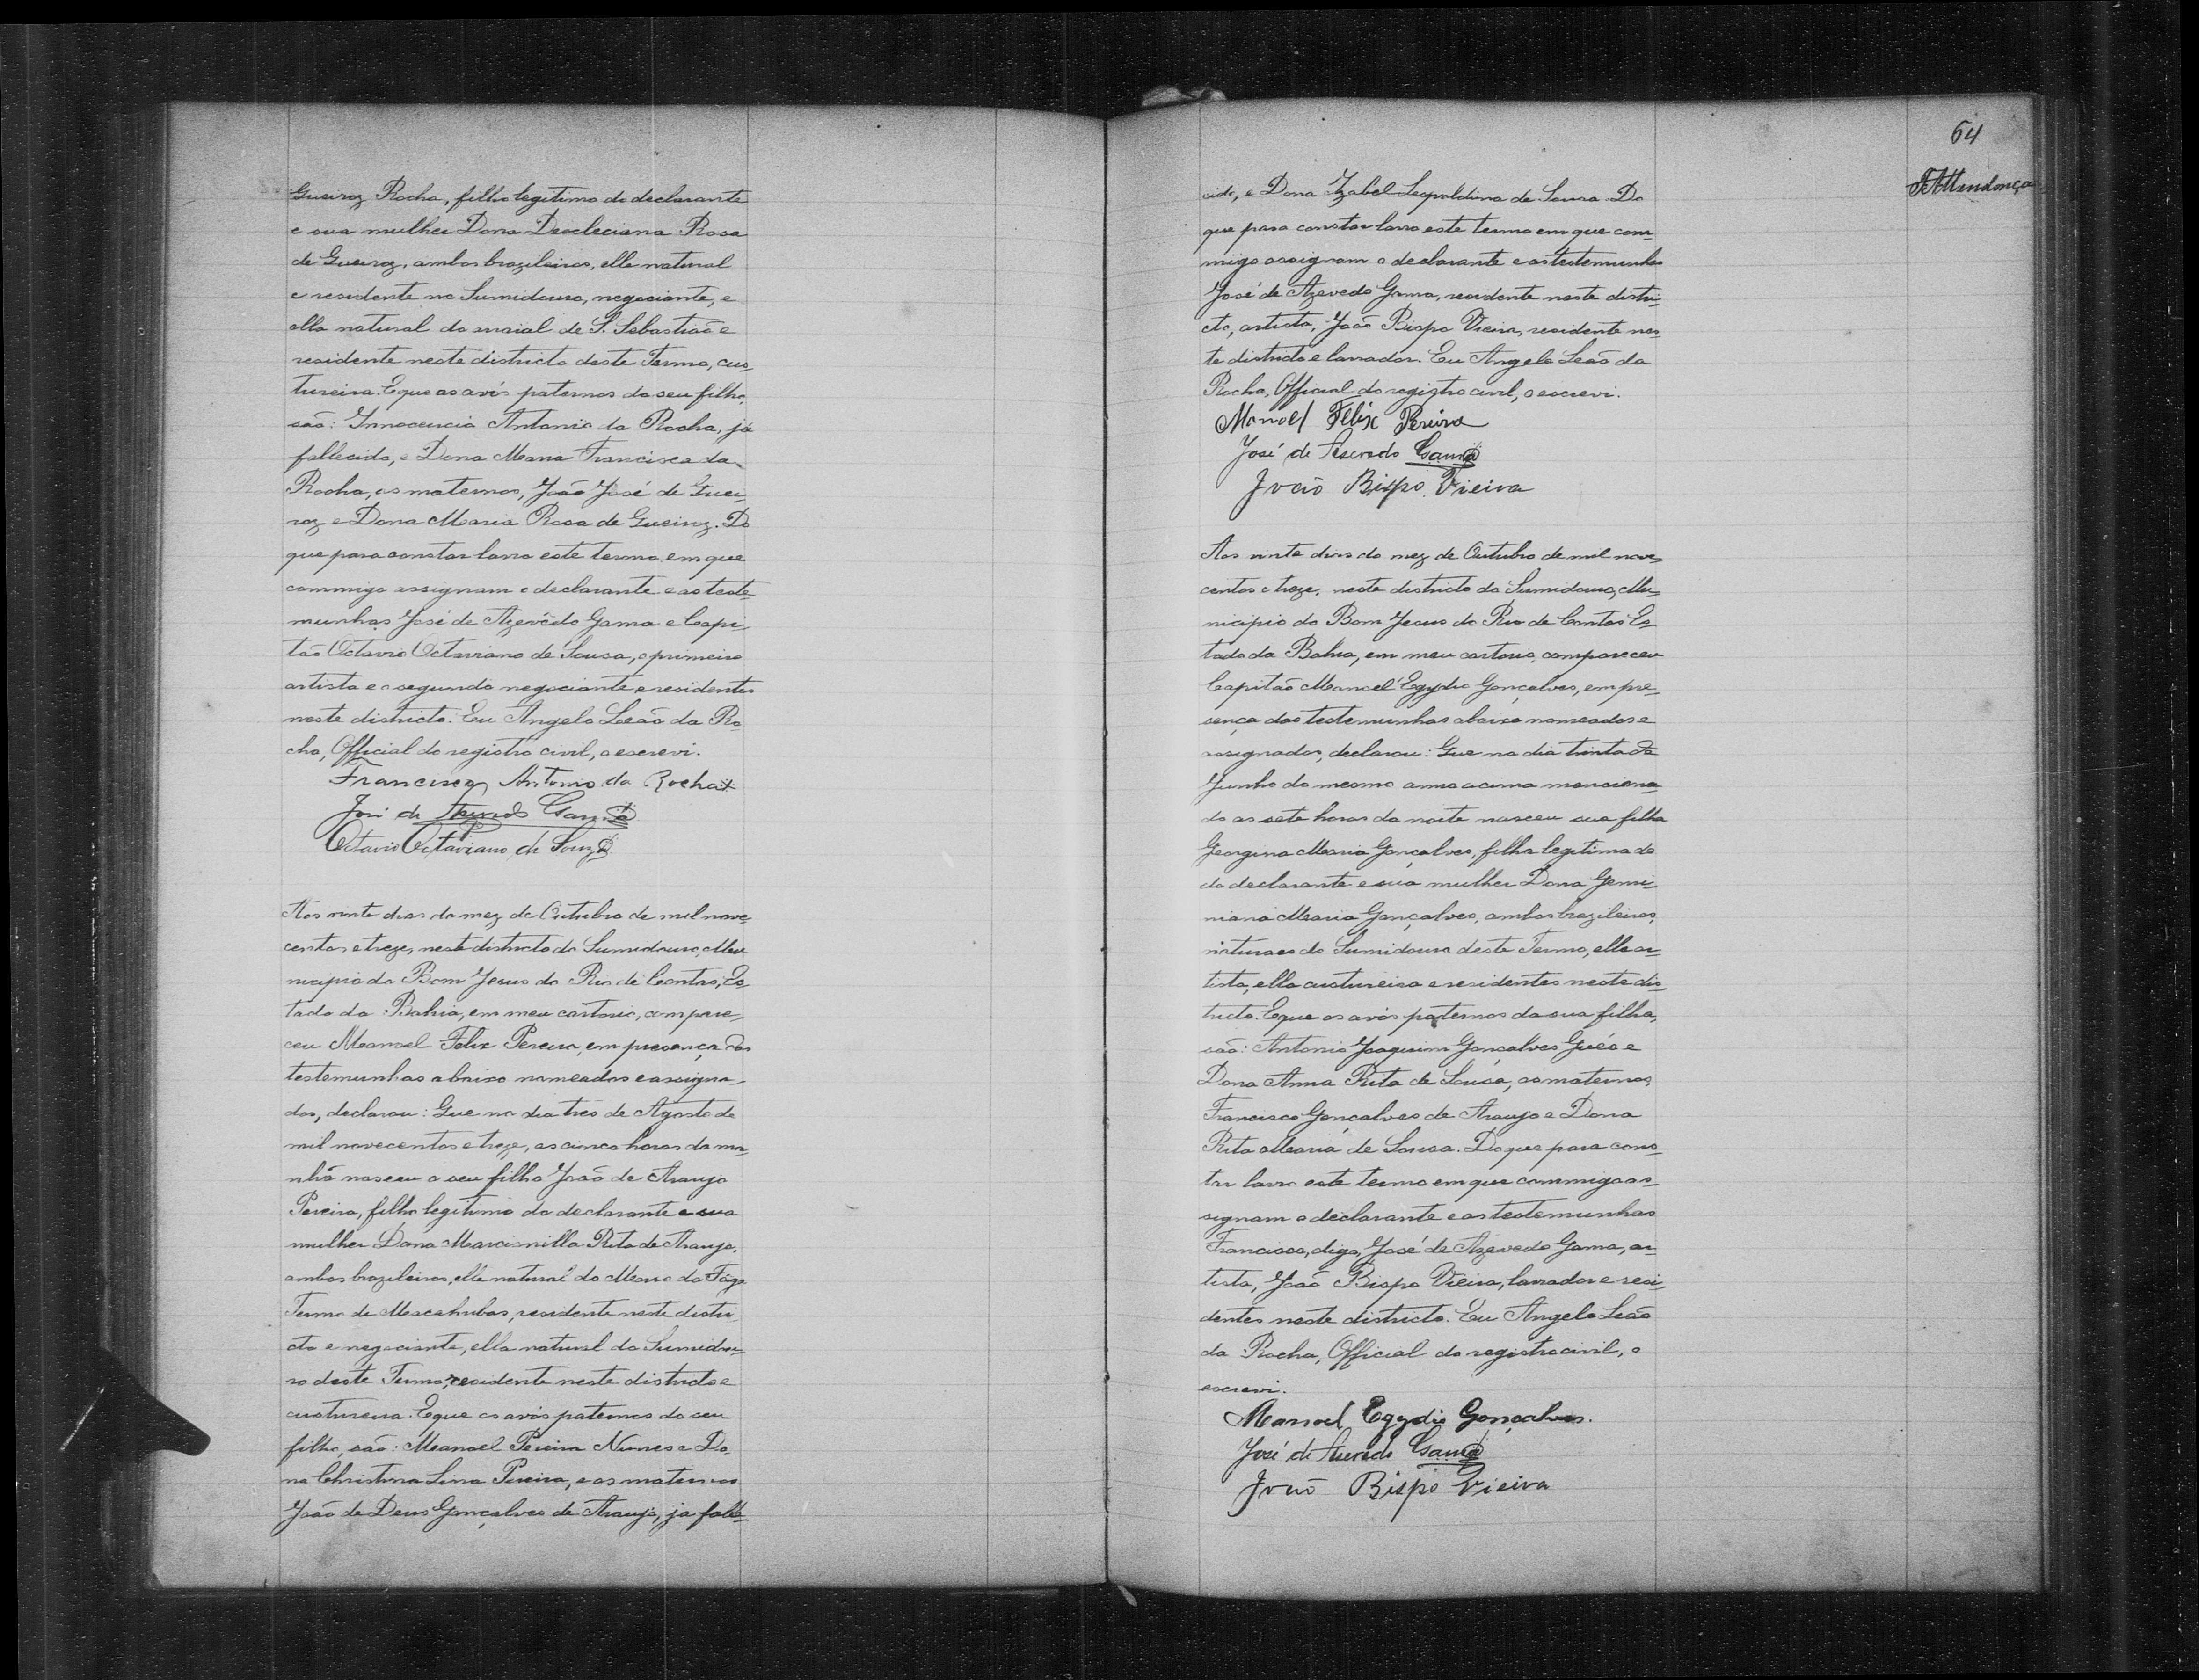 Gueiroz Rocha, filho legitimo do declarante
e sua mulher Dona Deocleciana Rosa
de Gueiroz, ambos brazileiros, elle natural
e residente no Sumidouro, negociante, e
ella natural do arraial de S. Sebastião e
residente neste districto deste Termo, cus-
tureira. E que os avós paternos do seu filho,
são: Innocencio Antonio da Rocha, já
fallecido, e Dona Maria Francisca da
Rocha, os maternos, João José de Guei-
roz e Dona Maria Rosa de Gueiroz. Do
que para constar lavro este termo em que
commigo assignam o declarante e as teste-
munhas José de Azevêdo Gama e Capi-
tão Octavio Octaviano de Sousa, o primeiro
artista e o segundo negociante e residentes
neste districto. Eu Angelo Leão da Ro-
cha, Official do registro civil, o escrevi.
Francisco Antonio da Rocha
José de Asevedo Gama
Octavio Octaviano de Souza
Aos vinte dias do mez de Outubro de mil nove-
centos e treze, neste districto do Sumidouro, Mu-
nicipio do Bom Jesus do Rio de Contas, Es-
tado da Bahia, em meu cartorio, compare-
ceu Manoel Felix Pereira, em presença das
testemunhas abaixo nomeadas e assigna-
das, declarou: Que no dia trêo de Agosto de
mil novecentos e treze, as cinco horas da ma-
nhã nasceu o seu filho João de Araujo
Pereira, filho legitimo do declarante e sua
mulher Dona Marcionilla Rita de Araujo,
ambos brazileiros, elle natural do Morro do Fôgo
Termo de Macahubas, residente neste distri-
cto e negociante, ella natural do Sumidou-
ro deste Termo, residente neste districto e
custureira. E que os avós paternos do seu
filho, são: Manoel Pereira Nunes e Do-
na Christina Lina Pereira, e os maternos
João de Deus Gonçalves de Araujo, ja falle-
64
cido, e Dona Izabel Leopoldina de Sousa. Do
que para constar lavro este termo em que com-
migo assignam o declarante e as testemunhas
José de Azevedo Gama, residente neste distri-
cto, artista, João Bispo Vieira, residente nes-
te districto e lavrador. Eu Angelo Leão da
Rocha, Official do registro civil, o escrevi.
Manoel Felix Pereira
José de Asevedo Gama
João Bispo Vieira
Aos vinte dias do mez de Outubro de mil nove-
centos e treze, neste districto do Sumidouro, Mu-
nicipio do Bom Jesus do Rio de Contas Es-
tado da Bahia, em meu cartorio, compareceu
Capitão Manoel Egydio Gonçalves, em pre-
sença das testemunhas abaixo nomeadas e
assignadas, declarou: Que no dia trinta de
Junho do mesmo anno acima menciona-
do as sete horas da noite nasceu sua filha
Georgina Maria Gonçalves, filha legitima do
do declarante e sua mulher Dona Gemi-
niana Maria Gonçalves, ambos brazileiros,
naturaes do Sumidouro deste Termo, elle ar-
tista, ella custureira e residentes neste dis-
tricto. E que os avós paternos da sua filha,
são: Antonio Joaquim Gonçalves Guéo e
Dona Anna Rita de Sousa, os maternos,
Francisco Gonçalves de Araujo e Dona
Rita Maria de Sousa. Do que para cons-
tar lavro este termo em que commigo as-
signam o declarante e as testemunhas
Francisco, digo, José de Azevedo Gama, ar-
tista, João Bispo Vieira, lavrador e resi-
dentes neste districto. Eu Angelo Leão
da Rocha, Official do registro civil, o
escrevi.
Manoel Egydio Gonçalves.
José de Asevedo Gama
João Bispo Vieira